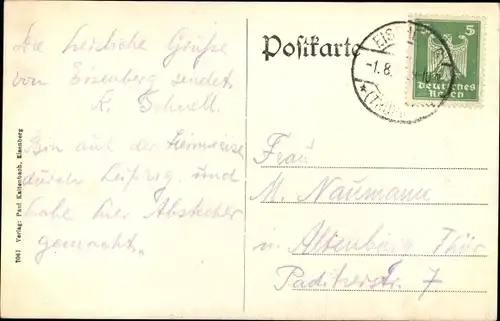 Die herzliche Grüße
von Eisenberg sendet
K. Schnell.
Bin auf der Heimreise
durch Leipzig und
habe hier Abstecher
gemacht.
7061 Verlag: Paul Kaltenbach, Eisenberg
Postkarte
5
Deutsches
Reich
EIS
-1.8.
*(THÜR
Frau
M. Naumann
in Altenburg Thür
Paditzerstr. 7